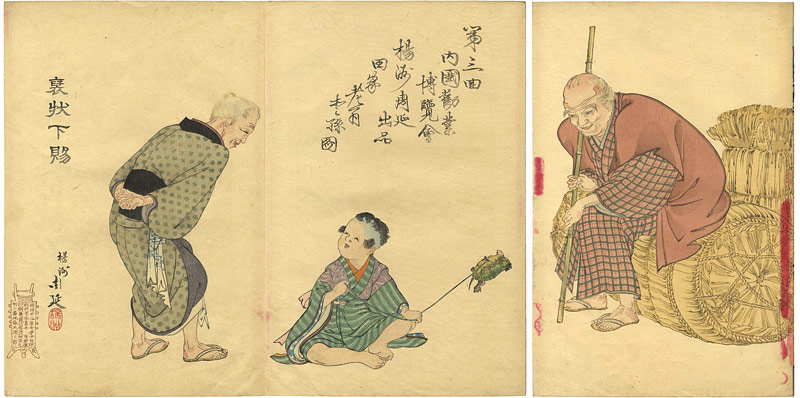 第三回
内國勸業
博覽會
楊洲周延
出品
田家
老翁
愛孫圖
褒状下賜
楊洲
周延